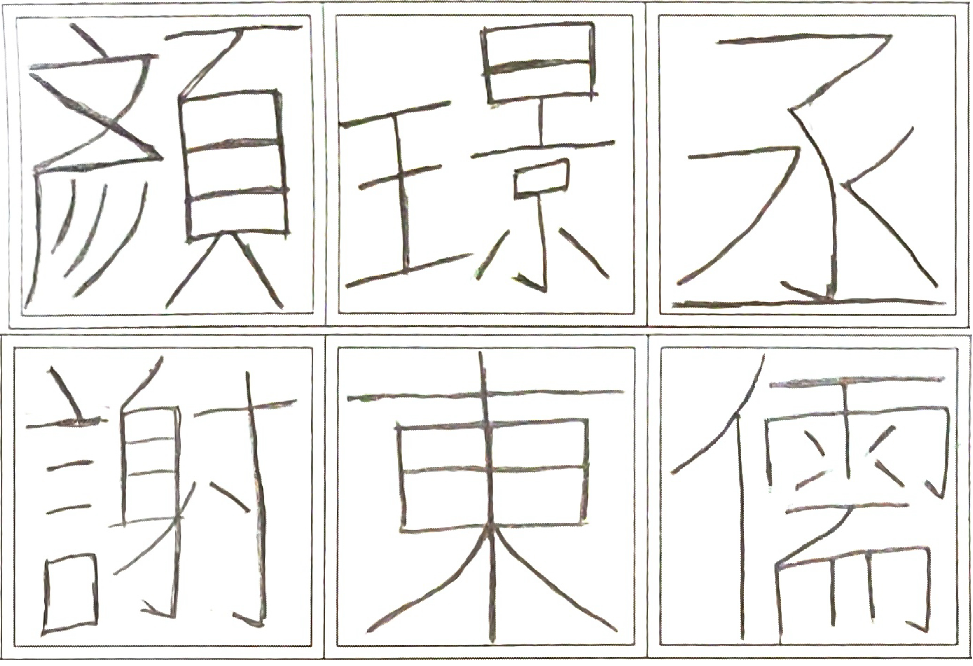 顏璟丞
謝東儒